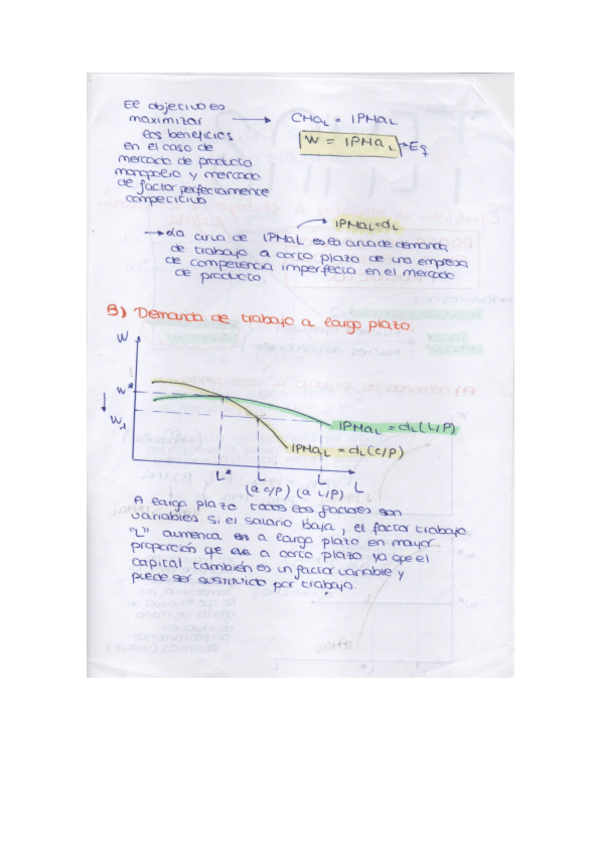 El objetivo es
maximizar → CMaL = IPMaL
los beneficios
W = IPMaL → Eq
en el caso de
mercado de producto
monopolio y mercado
de factor perfectamente
competitivo
IPMaL = dL
→ La curva de IPMaL es la curva de demanda
de trabajo a corto plazo de una empresa
de competencia imperfecta en el mercado
de producto.
B) Demanda de trabajo a largo plazo.
W
W*
W1
IPMaL = dL (L/P)
IPMaL = dL (C/P)
L* L L L
(a c/P) (a L/P)
A largo plazo todos los factores son
variables. Si el salario baja, el factor trabajo
"L" aumenta a largo plazo en mayor
proporción que a corto plazo ya que el
capital también es un factor variable y
puede ser sustituido por trabajo.